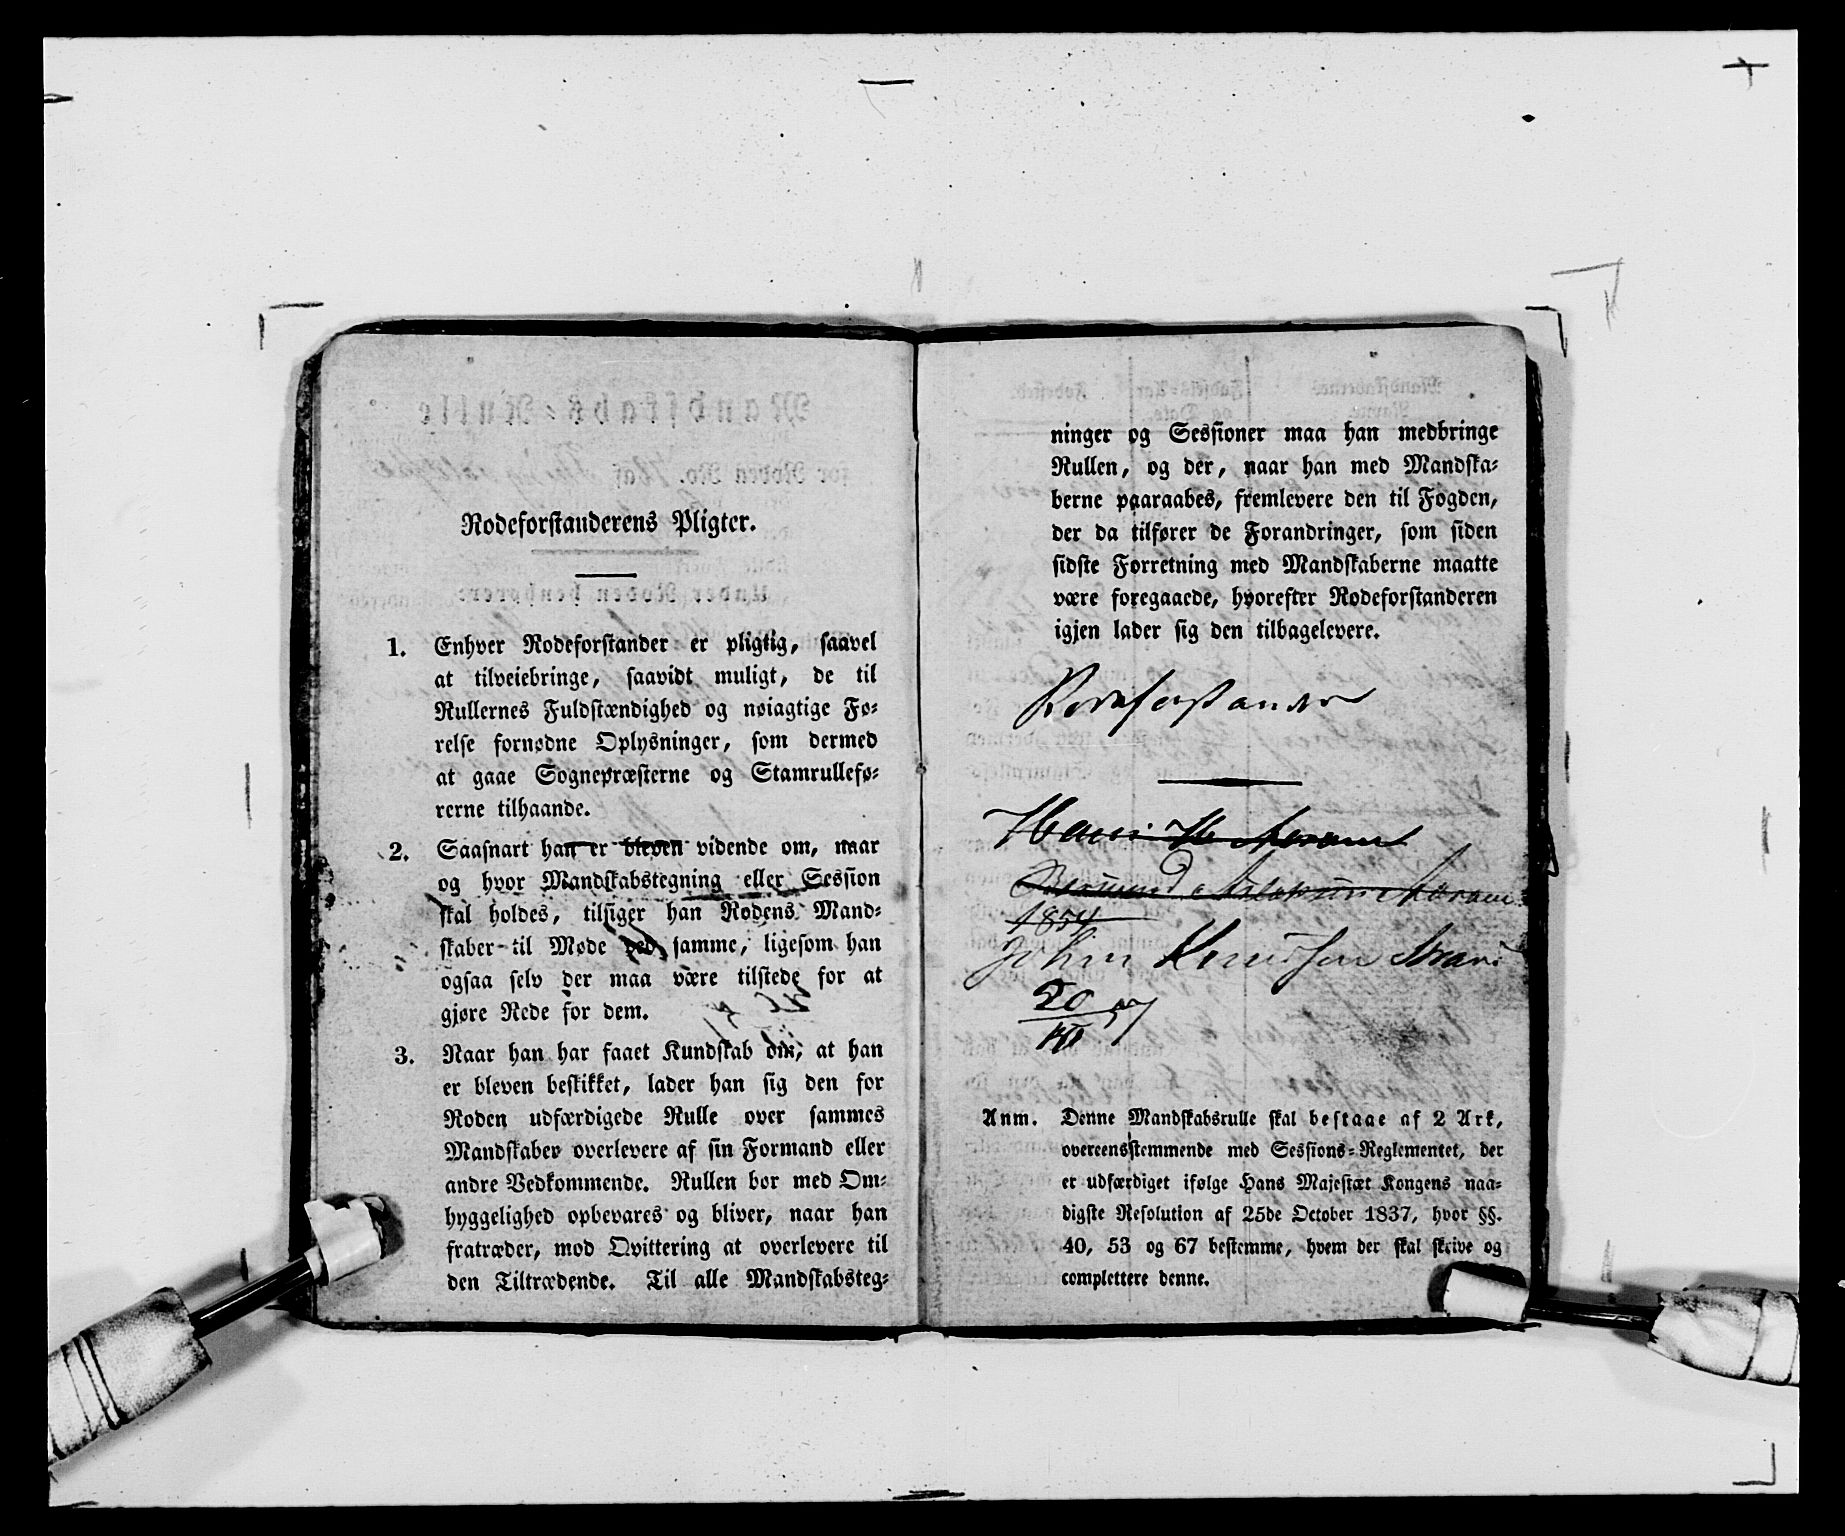 Rodeforstanderens Pligter.
1. Enhver Rodeforstander er pligtig, saavel
at tilveiebringe, saavidt muligt, de til
Rullernes Fuldstændighed og nøiagtige Fø-
relse fornødne Oplysninger, som dermed
at gaae Sognepræsterne og Stamrullefø-
rerne tilhaande.
2. Saasnart han er bleven vidende om, naar
og hvor Mandskabstegning eller Session
skal holdes, tilsiger han Rodens Mand-
skaber til Møde ved samme, ligesom han
ogsaa selv der maa være tilstede for at
gjøre Rede for dem.
3. Naar han har faaet Kundskab om, at han
er bleven beskikket, lader han sig den for
Roden udfærdigede Rulle over sammes
Mandskaber overlevere af sin Formand eller
andre Vedkommende. Rullen bør med Om-
hyggelighed opbevares og bliver, naar han
fratræder, mod Qvittering at overlevere til
den Tiltrædende. Til alle Mandskabsteg-
ninger og Sessioner maa han medbringe
Rullen, og der, naar han med Mandska-
berne paaraabes, fremlevere den til Fogden,
der da tilfører de Forandringer, som siden
sidste Forretning med Mandskaberne maatte
være foregaaede, hvorefter Rodeforstanderen
igjen lader sig den tilbagelevere.
Rodeforstander
1854
John Knudsen
20 57
Anm. Denne Mandskabsrulle skal bestaae af 2 Ark,
overeensstemmende med Sessions-Reglementet, der
er udfærdiget ifølge Hans Majestæt Kongens naa-
digste Resolution af 25de October 1837, hvor §§.
40, 53 og 67 bestemme, hvem der skal skrive og
complettere denne.